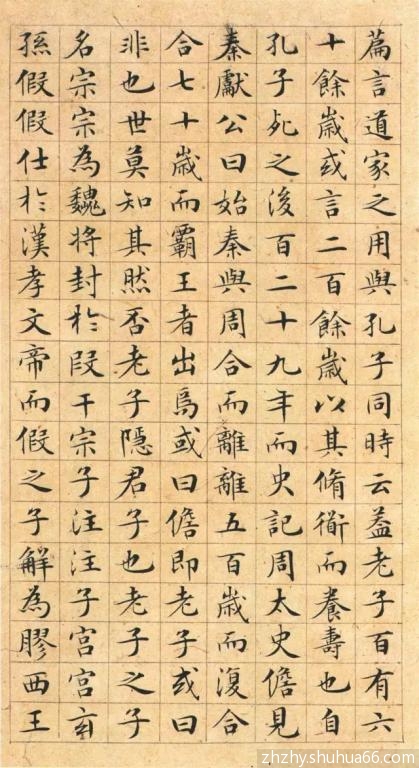 篇言道家之用與孔子同時云蓋老子百有六
十餘歲或言二百餘歲以其脩衜而養壽也自
孔子死之後百二十九年而史記周太史儋見
秦獻公曰始秦與周合而離離五百歲而復合
合七十歲而霸王者出焉或曰儋即老子或曰
非也世莫知其然否老子隱君子也老子之子
名宗宗為魏將封於段干宗子注注子宮宮玄
孫假假仕於漢孝文帝而假之子解為膠西王
zhzhyshuhua66.com